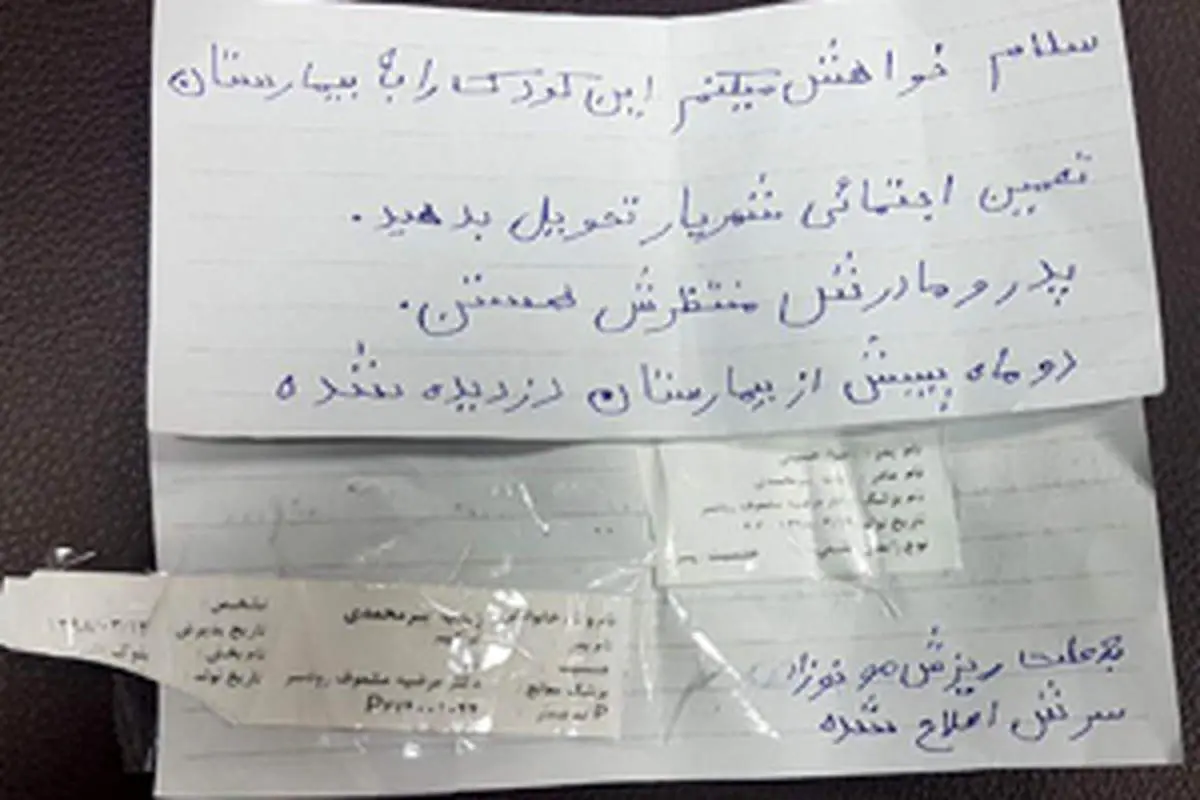 سلام خواهش میکنم این کودک را به بیمارستان
تعمین اجتمائی شهریار تحویل بدهید.
پدر و مادرش منتظرش هستن.
دو ماه پیش از بیمارستان دزدیده شده
نام پدر :
نام مادر :
تاریخ تولد
نام و نام خانوادگی : زینب میرمحمدی
نام پدر
جنسیت
پزشک معالج : دکتر مرضیه
تشخیص :
تاریخ پذیرش ۱۳۹۸/۰۳/۱۲
نام بخش : بلوک
تاریخ تولد
به علت ریزش مو نوزاد
سرش اصلاح شده